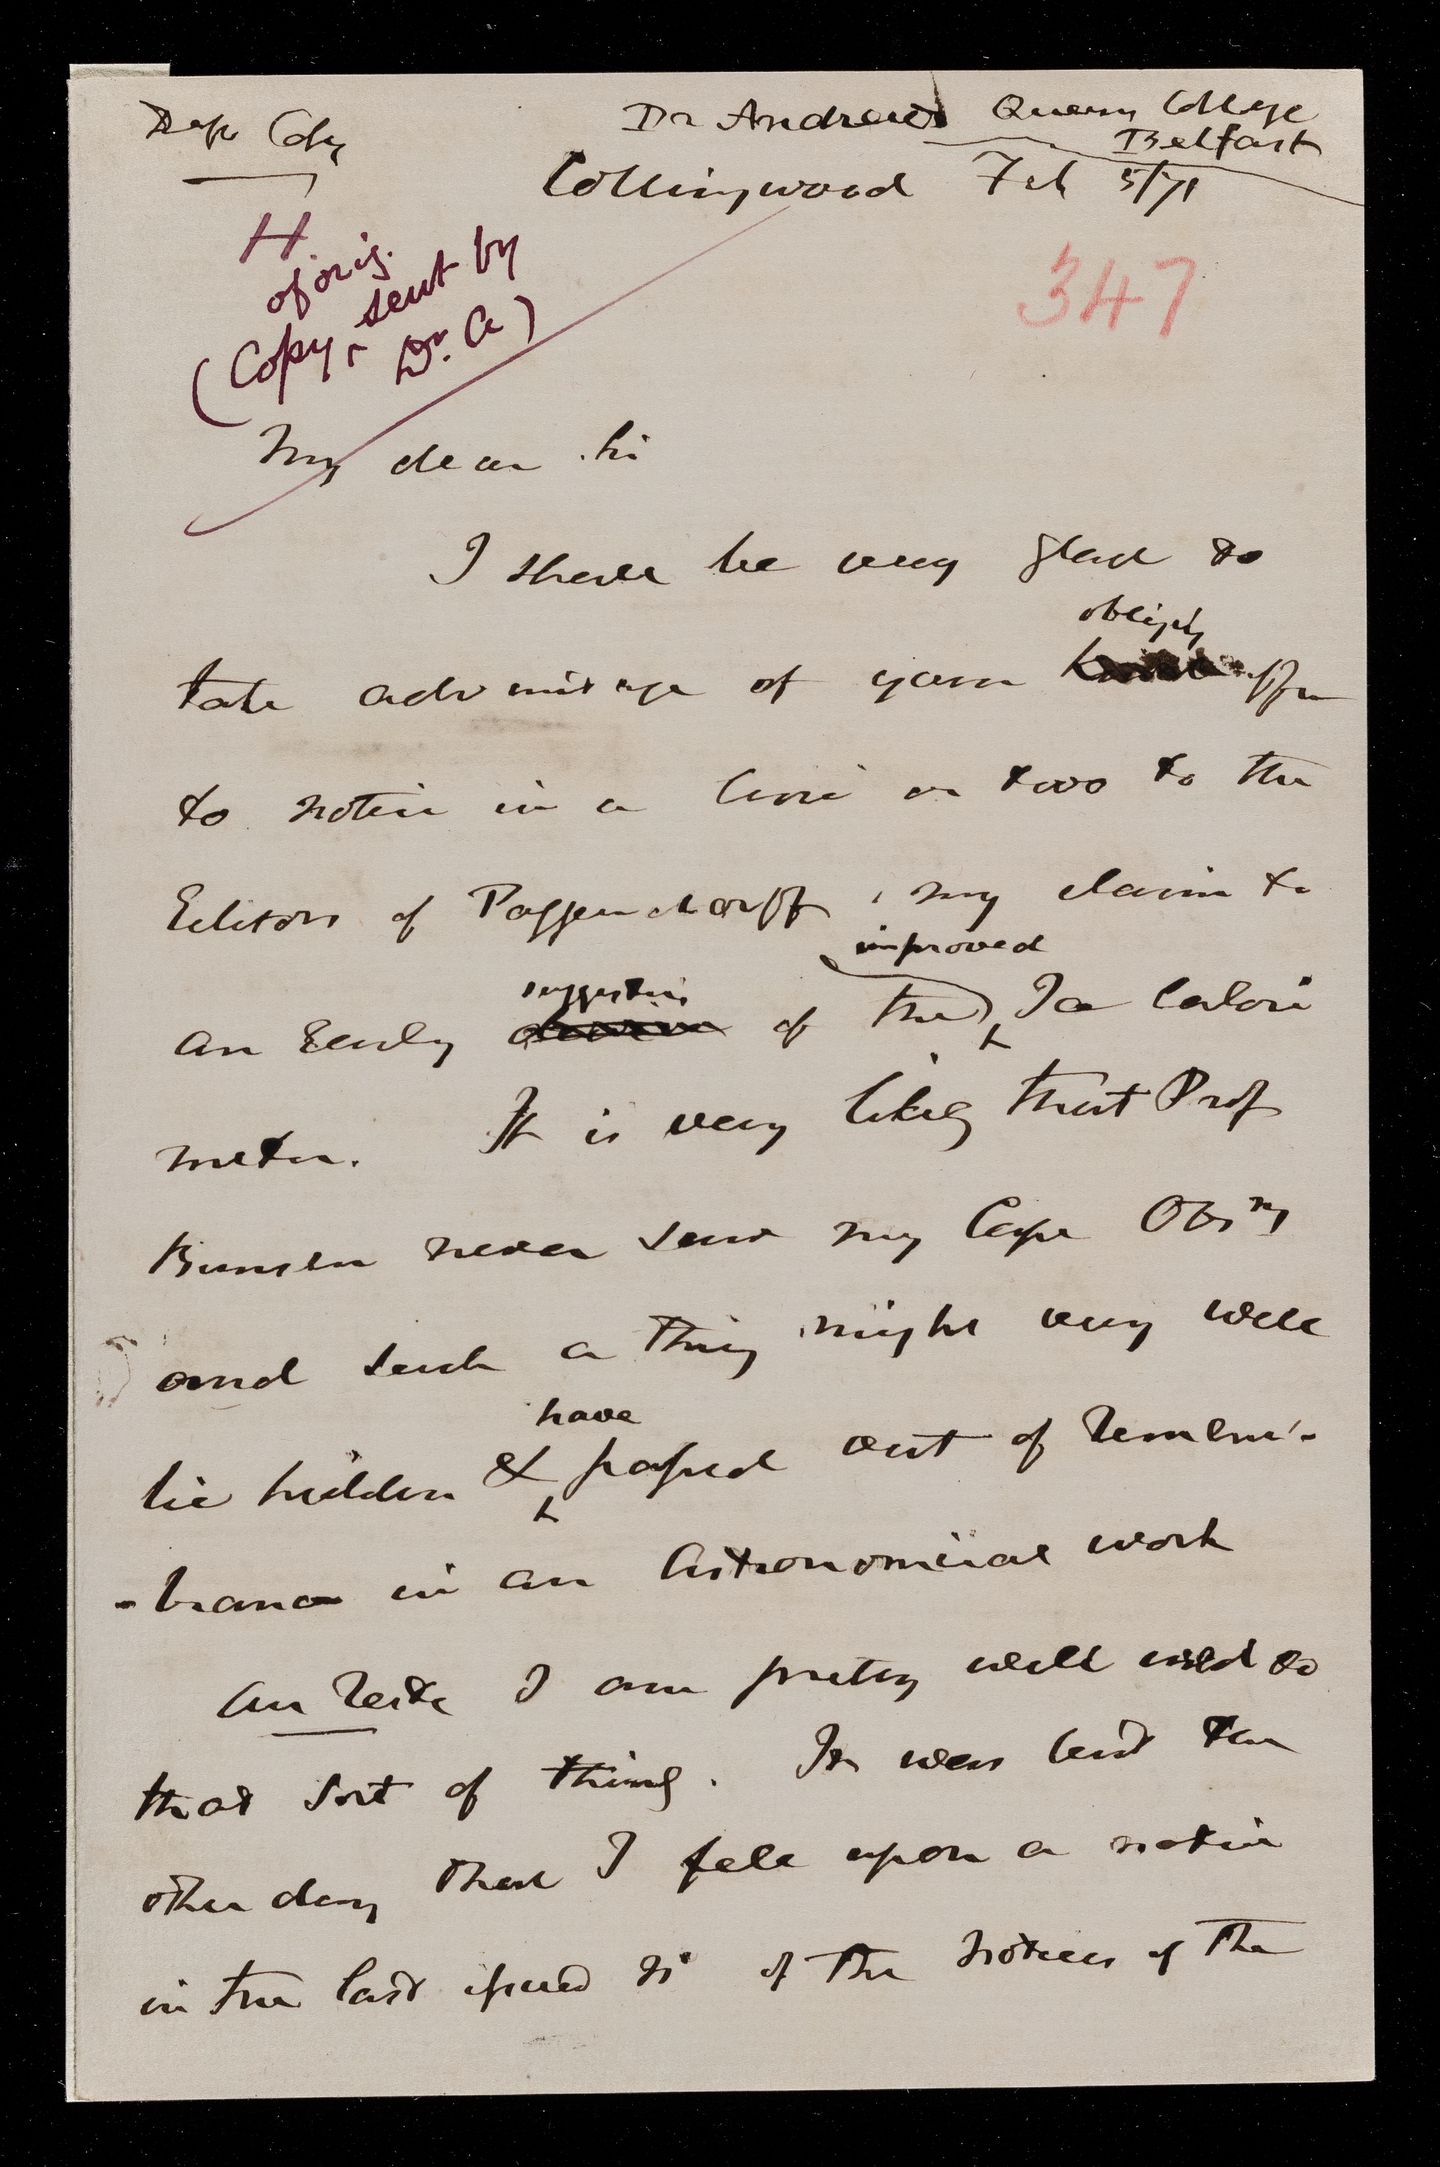 Dr Andrews Queens College
Belfast
Collingwood Feb 5/71
H
(Copy, of orig. sent by
Dr. A)
347
My dear Sir
I shall be very glad to
obliging
take advantage of your offer
to notice in a line or two to the
Editors of Poggendorff, my claim to
improved
suggestion
an Early of the Ice Calori
meter. It is very likely that Prof
Bunsen never saw my Cape Obsns
and such a thing might very well
have
lie hidden & passed out of Remem-
-brance in an Astronomical work
Au Reste I am pretty well used to
that sort of thing. It was but the
other day that I fell upon a notice
in the last issued No of the Notices of the